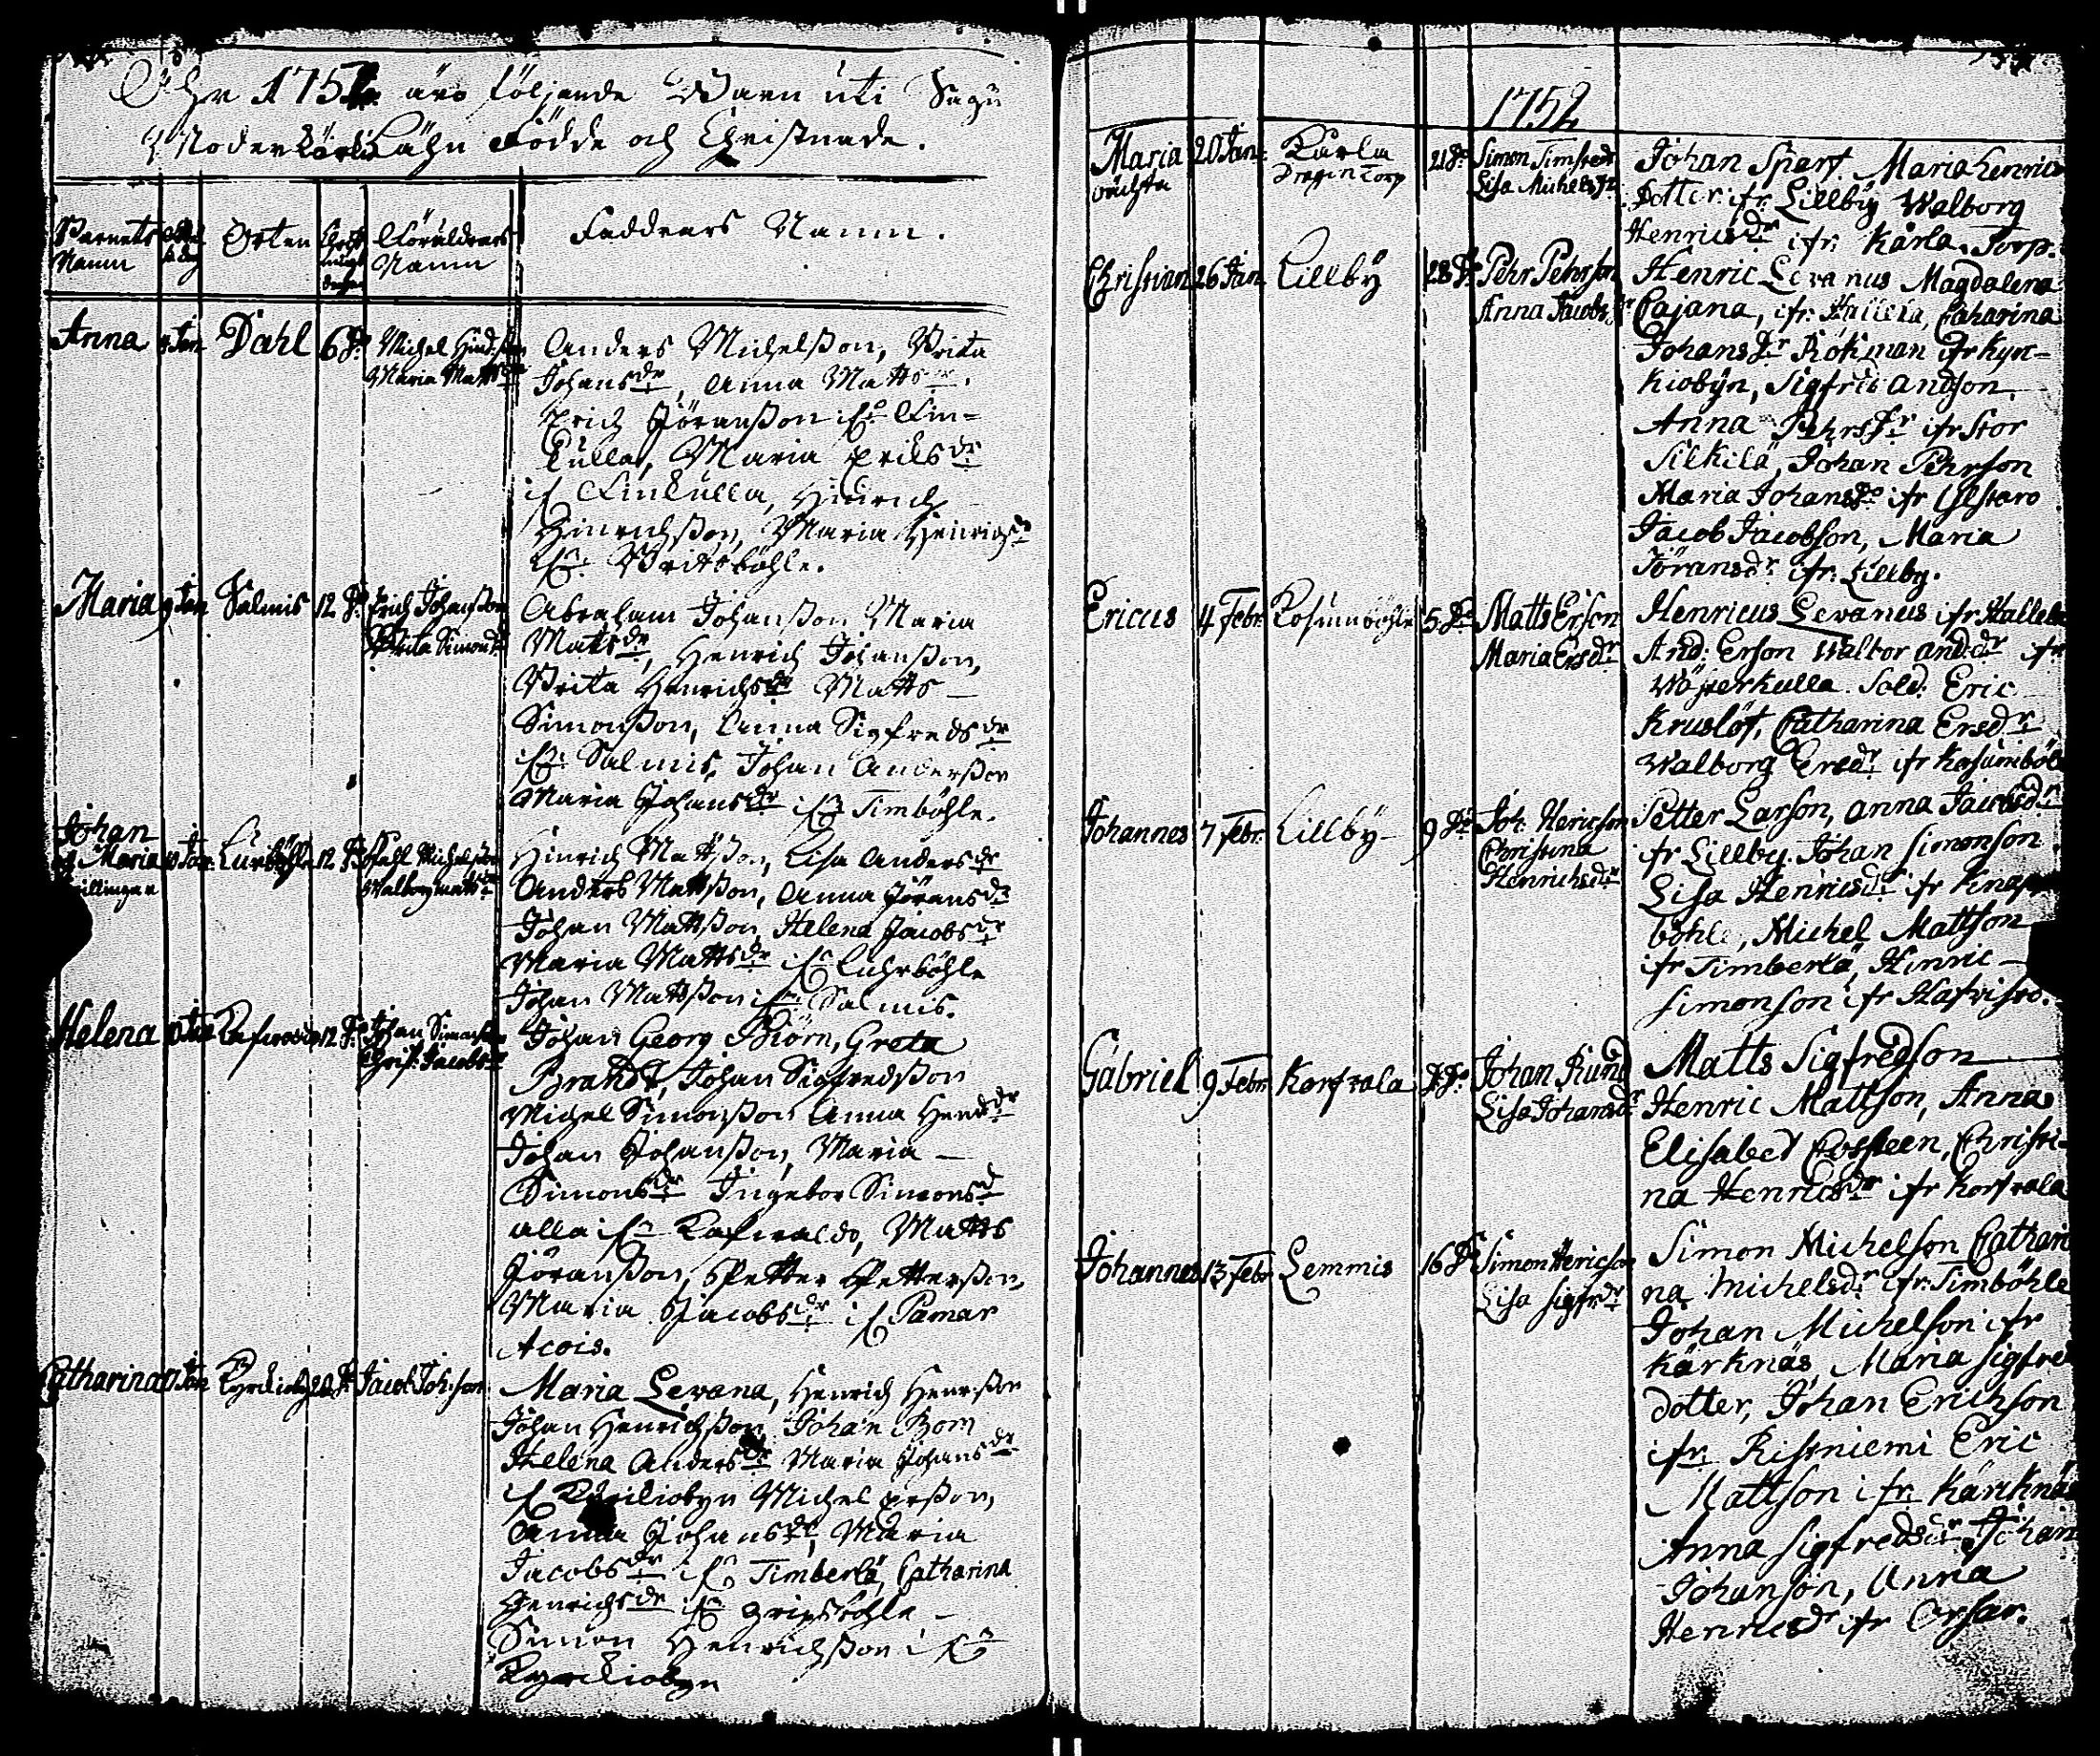 Åhr 1752 äro följande Barn uti Sagu
Moderkörkio Lähn Födde och Christnade.
Barnets Namn
Orten
Föräldrars Namn
Faddrars Namn.
Anna
Jan
Dahl
6 do
Michel Hindsson
Maria Mattsdr
Anders Michelsson, Brita
Johansdr, Anna Mattsdr.
Erich Jöransson ifr Fin-
kulla, Maria Eriksdr
ifr Finkulla, Hinrich
Hinrichsson, Maria Henrichsdr
ifr Britsböhle.
Maria
9 Jan
Salmis
12 do
Erich Johansson
Brita Simonsdr
Abraham Johansson Maria
Matsdr, Henrich Johansson,
Brita Henrichsdr Matts
Simonsson, Anna Sigfredsdr
ifr Salmis, Johan Andersson
Maria Johansdr ifr Timböhle.
Johan
og Maria
tvillingar
10 Jan
Lurböhle
12 do
Pehl Michelsson
Walborg Mattsdr
Hinrich Mattsson, Lisa Andersdr
Anders Mattsson, Anna Jöransdr
Johan Mattsson, Helena Jacobsdr
Maria Mattsdr ifr Luhrböhle
Johan Matsson ifr Salmis.
Helena
Jan
12 do
Johan Simonsson
Christ: Jacobsdr
Johan Georg Biörn, Greta
Brandt, Johan Sigfredsson
Michel Simonsson Anna Hendr
Johan Johansson, Maria
Simonsdr Ingebor Simonsd
alla ifr Rafwaldz, Matts
Jöransson, Petter Pettersson,
Maria Jacobsdr ifr Pamar
Acois.
Catharina
Jan
Kyrckiobyn
Jacob Joh:son
Maria Levana, Henrich Henrsson
Johan Henrichsson Johan Bom
Helena Andersdr Maria Johansdr
ifr Kyrckiobyn Michel Ersson,
Anna Johansdr, Maria
Jacobsdr ifr Timberlä, Catharina
Henrichsdr ifr Gripsböhle
Simon Henrichsson ifr
Kyrckiobyn
1752
Maria
oächta
20 Jan:
Karla
Dragon Torp
21 do
Simon Simsted
Lisa Michelsdr
Johan Sparf. Maria Henrics
Dotter ifr Lillby Walborg
Henricsdr ifr: Karla Torp.
Christian
26 Jan
Lillby
28 do
Pehr Pehrson
Anna Jacobsdr
Henric Levanus Magdalena
Cajana, ifr: Hallela, Catharina
Johansdr Rökman ifr Kyr-
kiobyn, Sigfrid Andson
Anna Pehrsdr ifr Stor
Silkilä, Johan Pehrson
Maria Johansdr ifr Ylistaro
Jacob Jacobson, Maria
Jöransdr ifr: Lillby.
Ericus
4 Febr:
Kosumböhle
5 do
Matts Erson
Maria Ersdr
Henricus Levanus ifr Hallela
And: Erson Walbor Andsdr ifr
Wöjperkulla. Sold: Eric
Kruslöf, Catharina Ersdr
Walborg Ersdr ifr Kosumböle
Johannes
7 Febr:
Lillby
9 do
Joh: Hericson
Christina
Henrichsdr
Petter Larson, Anna Jacobsdr
ifr Lillby. Johan Simonson
Lisa Henricsdr ifr Knap
böhle, Michel Mattson
ifr Timberlä, Hinric
Simonson ifr Hafvisro.
Gabriel
9 Febr:
Korfvala
do
Johan Rund
Lisa Johansdr
Matts Sigfredson
Henric Mattson, Anna
Elisabed Costeen, Christi-
na Henricsdr ifr Korfvala
Johannes
13 Febr
Lemmis
16 do
Simon Hericson
Lisa Sigfrdr
Simon Michelson Cathari
na Michelsdr ifr: Timböhle
Johan Michelson ifr
Kärknäs, Maria Sigfred
dotter, Johan Erichson
ifr: Ristniemi Eric
Mattson ifr: Kärknäs
Anna Sigfredsdr, Johan
Johanson, Anna
Henricsdr ifr Orsar.